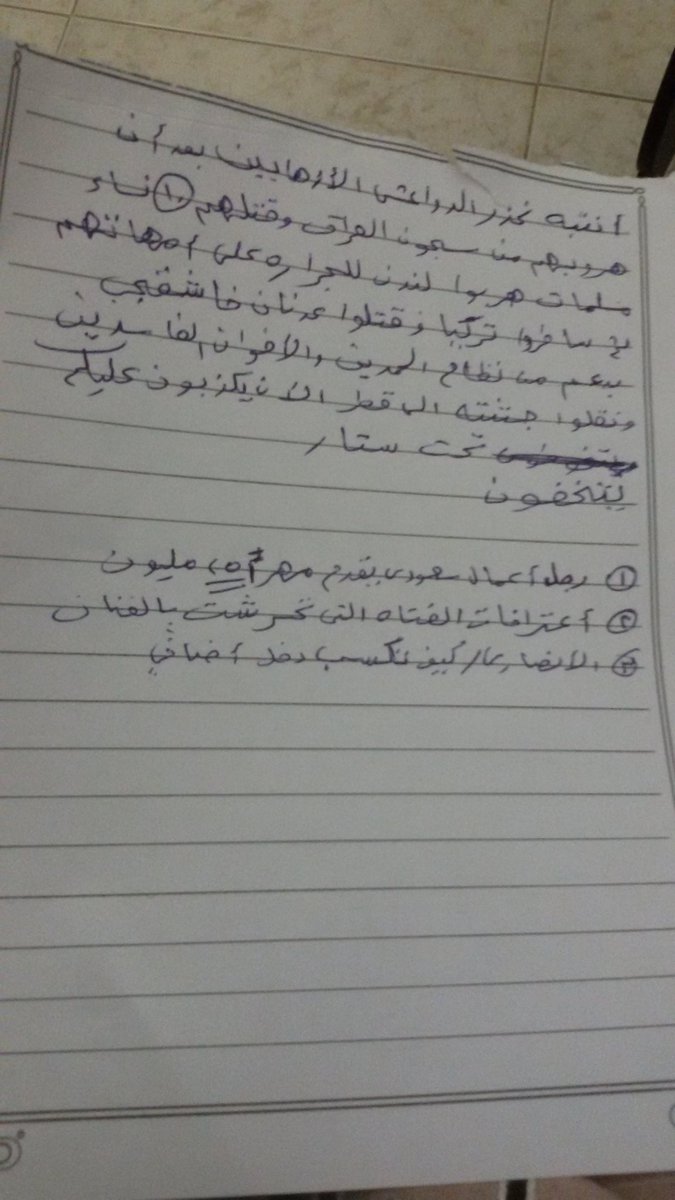 أنتبه نحذر الدواعش الأرهابين بعد أن
هروبهم من سجون العراق وقتلهم ١٠ نساء
مسلمات هربوا لندن للجزاره على أمهاتهم
سافروا تركيا وقتلوا عدنان خاشقجي
بدعم من نظام الحمدين والأخوان الفاسدين
ونقلوا جثته الى قطر الأن يكذبون عليكم
تحت ستار
يتخفون
١ رجل أعمال سعودى يقدم مهراً ٥ مليون
٢ أعترافات الفتاه التى تحرشت بالفنان
٣ كيف نكسب دخل أضافي